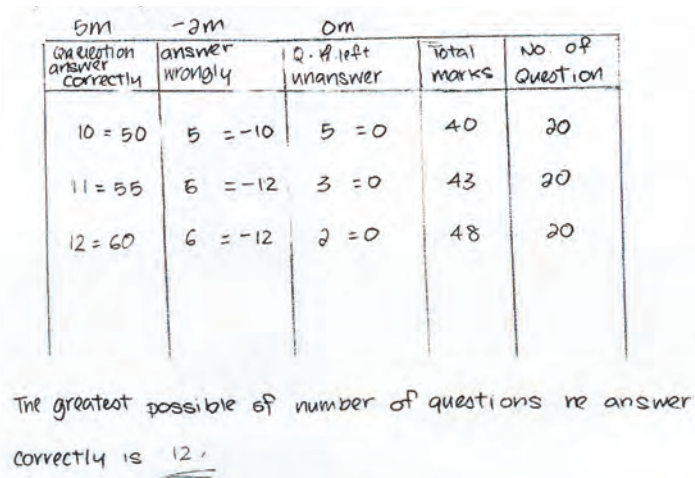 5m -2m 0m
Question answer correctly answer wrongly Q. left unanswer Total marks No. of Question
10 = 50 5 = -10 5 = 0 40 20
11 = 55 6 = -12 3 = 0 43 20
12 = 60 6 = -12 2 = 0 48 20
The greatest possible of number of questions he answer
correctly is 12.